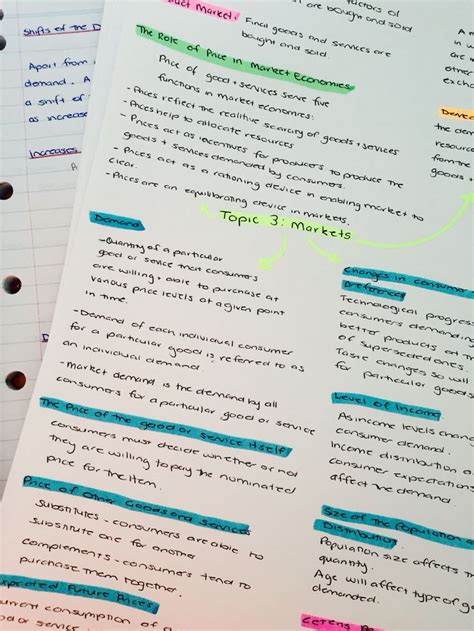 Product Market:
Final goods and services are
bought and sold.
factors of
are bought and sold
The Role of Price in Market Economies
Price of good + services serve five
functions in market economies:
- Prices reflect the realitive scarcity of goods + services
- Prices help to allocate resources
- Prices act as incentives for producers to produce the
goods + services demanded by consumers.
- Prices act as a rationing device in enabling market to
clear.
- Prices are an equilibrating device in markets.
Topic 3: Markets
Demand
- Quantity of a particular
good or service that consumers
are willing + able to purchase at
various price levels at a given point
in time.
- Demand of each individual consumer
for a particular good is referred to as
an individual demand
- Market demand is the demand by all
consumers for a particular good or service
The Price of the good or service itself
consumers must decide whether or not
they are willing to pay the nominated
price for the item.
Price of Other Goods and Services
Substitutes - consumers are able to
substitute one for another
complements - consumers tend to
purchase them together.
Expected Future Prices
current consumption of a
good or service
Changes in consumer
Preferences
Technological progre
consumers demanding
better products at
of superseded ones.
Taste changes so will
for particular goods
Level of Income
As income levels chang
consumer demand.
Income distribution a
consumer expectations
affect the demand.
Size of the Population a
Distribution
Population size affects th
quantity.
Age will affect type of go
demanded.
Shifts of the D
Apart from
demand. A
a shift of
as increase
Increases